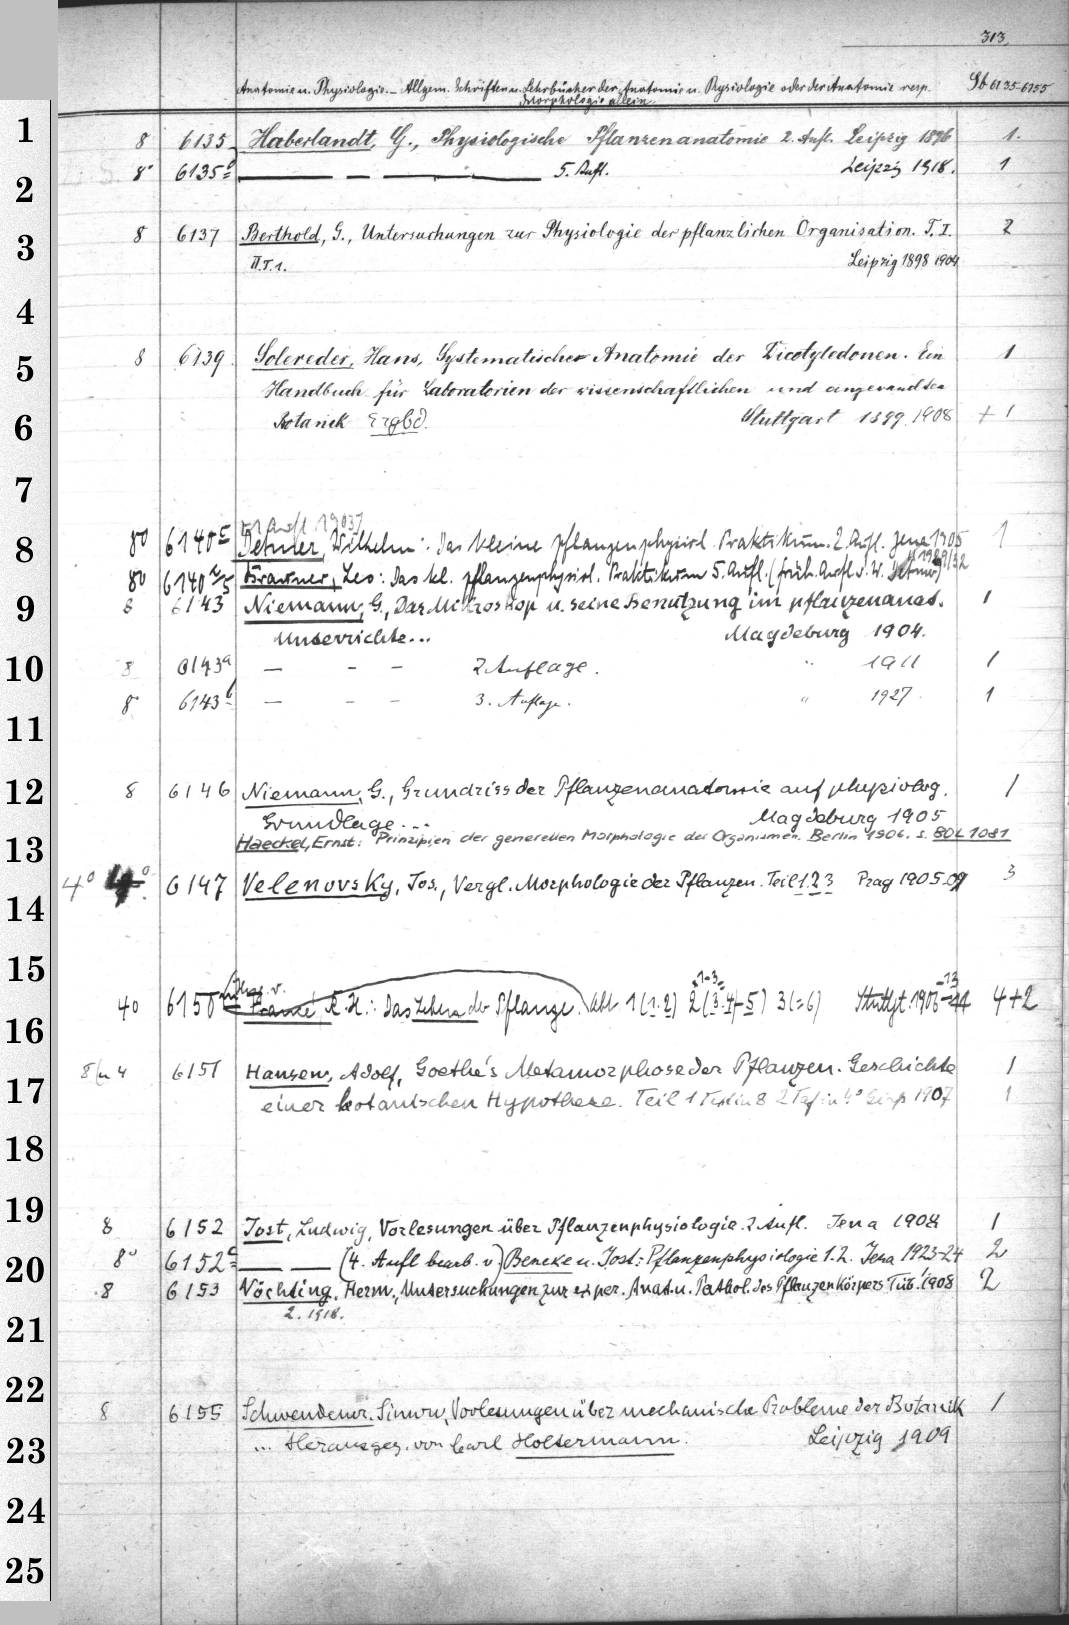 313.
Anatomie u. Physiologie. – Allgem. Schriften u. Lehrbücher der Anatomie u. Physiologie oder der Anatomie resp. Sb 6135-6155
Morphologie allein.
1
8 6135 Haberlandt, G., Physiologische Pflanzenanatomie 2. Aufl. Leipzig 1896 1.
8° 6135 b — — — 5. Aufl. Leipzig 1918. 1
2
3
8 6137 Berthold, G., Untersuchungen zur Physiologie der pflanzlichen Organisation. T. I. 2
II.T.1. Leipzig 1898 1904
4
5
8 6139 Solereder, Hans, Systematischer Anatomie der Dicotyledonen. Ein 1
Handbuch für Laboratorien der wissenschaftlichen und angewandten
6
Botanik Ergbd. Stuttgart 1899. 1908 + 1
7
1 Aufl. 1903
8
80 6140 Detmer, Wilhelm: Das kleine pflanzenphysiol. Praktikum. 2. Aufl. Jena 1905 1
80 6140 Brauner, Leo: Das kl. pflanzenphysiol. Praktikum 5. Aufl. (früh. Aufl. v. W. Detmer) 1929/32
9
8 6143 Niemann, G., Das Mikroskop u. seine Benutzung im pflanzenanat. 1
Unterrichte... Magdeburg 1904.
10
8 6143a — – – 2 Auflage. " 1911 1
8° 6143b — – – 3. Auflage. " 1927. 1
11
12
8 6146 Niemann, G., Grundriss der Pflanzenanatomie auf physiolog. 1
Grundlage... Magdeburg 1905
13
Haeckel, Ernst: Prinzipien der generellen Morphologie der Organismen. Berlin 1906. s. BOL 1081
4° 4° 6147 Velenovsky, Jos., Vergl. Morphologie der Pflanzen. Teil 1 2 3 Prag 1905.07 3
14
15
1-3 -13
40 6150 Francé, R. H.: Das Leben der Pflanze. Abt. 1 (1. 2) 2 (3. 4-5) 3 (=6) Stuttgt. 1906 4+2
16
8 u 4 6151 Hansen, Adolf, Goethe's Metamorphose der Pflanzen. Geschichte 1
17
einer botanischen Hypothese. Teil 1 Text in 8 2 Taf in 4° 1907 1
18
19
8 6152 Jost, Ludwig, Vorlesungen über Pflanzenphysiologie. 2 Aufl. Jena 1908 1
20
8° 6152 — — (4. Aufl bearb. v) Benecke u. Jost: Pflanzenphysiologie 1. 2. Jena 1923-24 2
8 6153 Vöchting, Herm., Untersuchungen zur exper. Anat. u. Pathol. des Pflanzenkörpers Tüb. 1908 2
2. 1918.
21
22
8 6155 Schwendener, Simon, Vorlesungen über mechanische Probleme der Botanik 1
23
... Herausgeg. von Carl Holtermann. Leipzig 1909
24
25